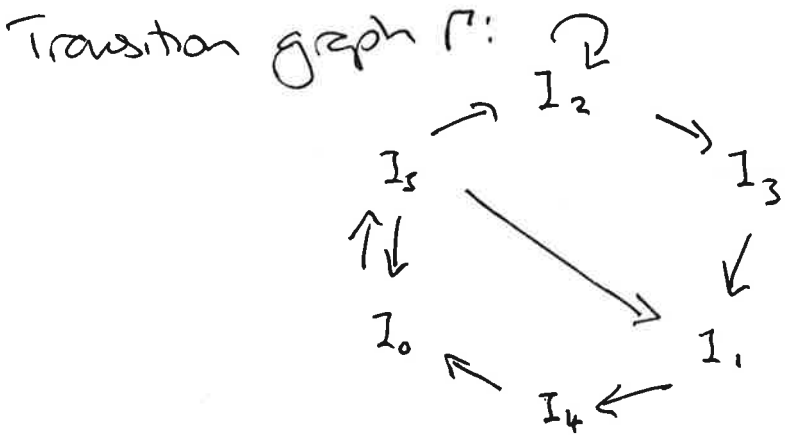 Transition graph Γ:
I₂
I₅
I₃
I₀
I₁
I₄